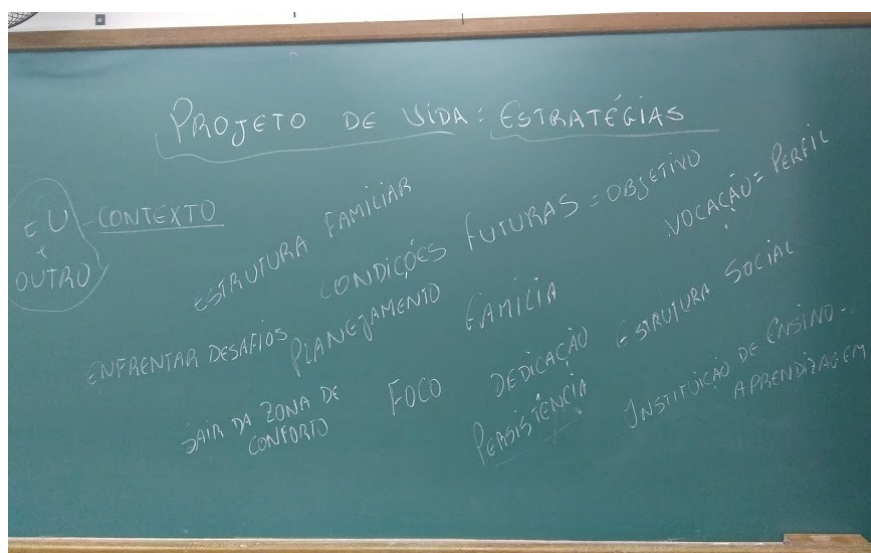 PROJETO DE VIDA: ESTRATÉGIAS
EU + OUTRO
CONTEXTO
ESTRUTURA FAMILIAR
CONDIÇÕES FUTURAS = OBJETIVO
VOCAÇÃO = PERFIL
ENFRENTAR DESAFIOS
PLANEJAMENTO
FAMILIA
ESTRUTURA SOCIAL
SAIR DA ZONA DE
CONFORTO
FOCO
DEDICAÇÃO
PERSISTÊNCIA
INSTITUIÇÃO DE ENSINO -
APRENDIZAGEM